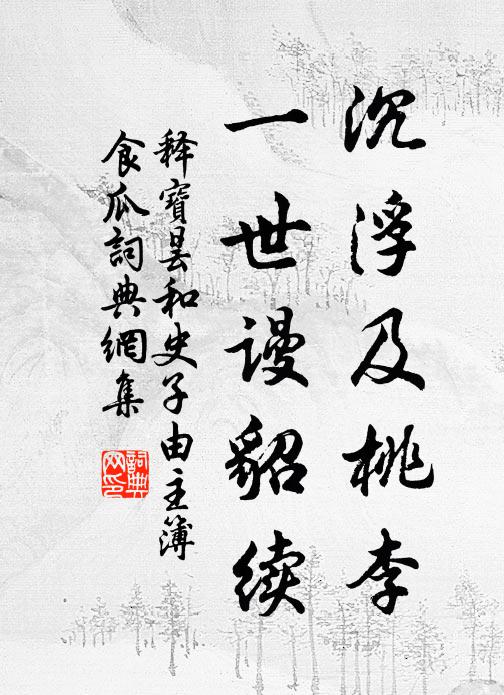 沉浮及桃李
一世谩貂续
释寶昙和史子由主簿
食瓜詞典網集
詞典网印